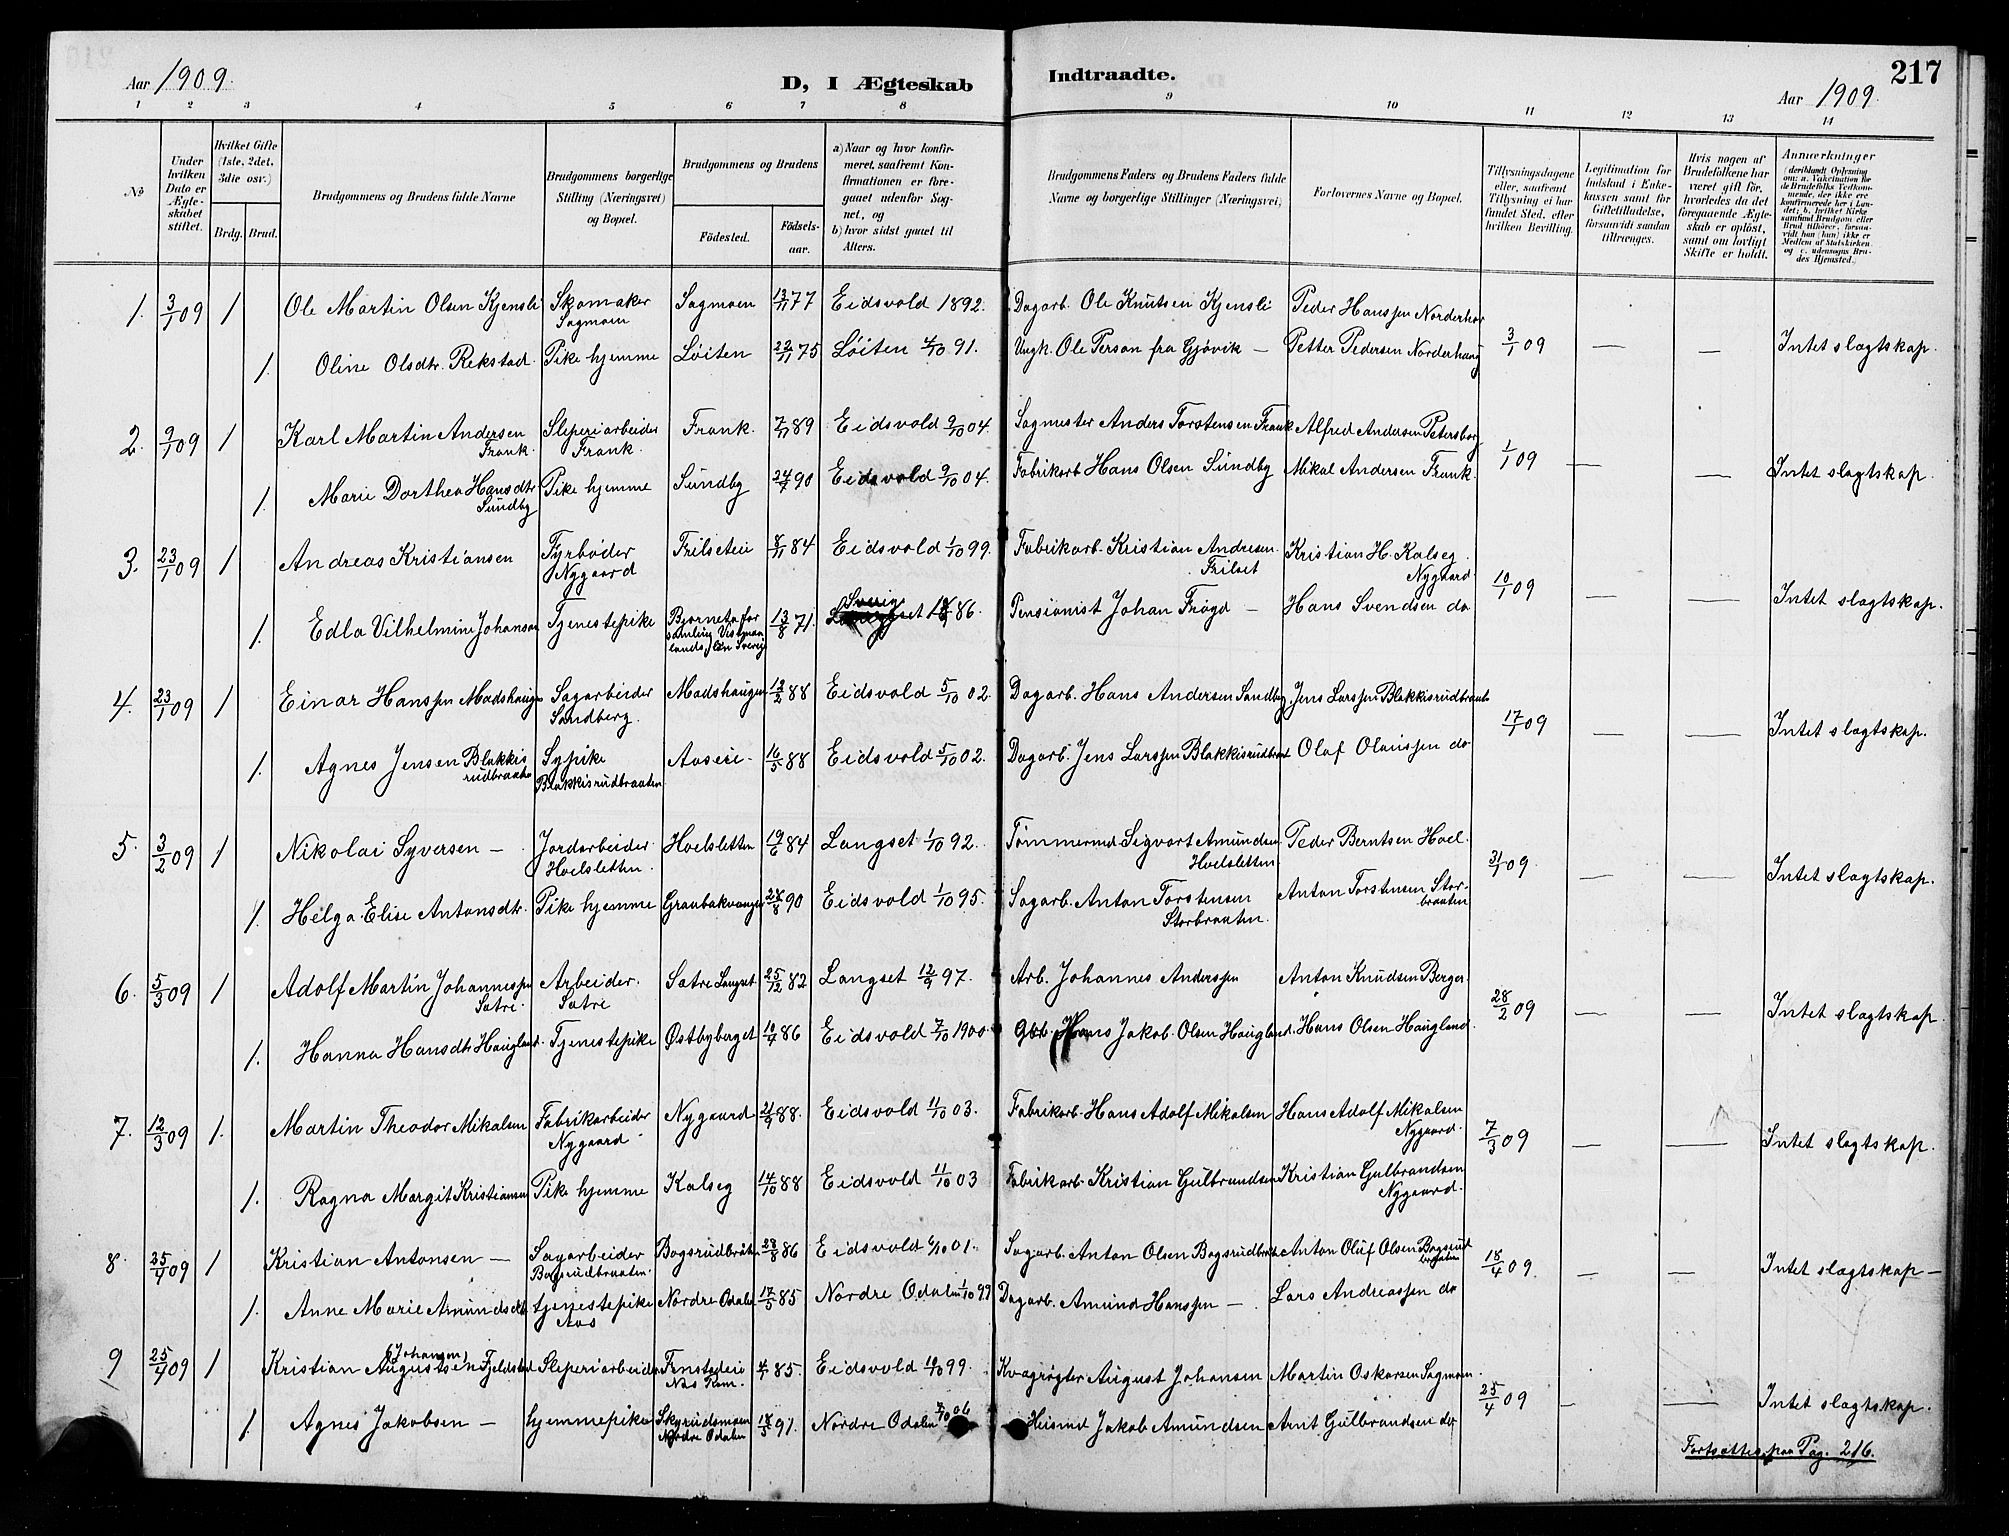 Aar 1909.
D, I Ægteskab Indtraadte.
217
Aar 1909.
1 2 3 4 5 6 7 8 9 10 11 12 13 14
No
Under hvilken Dato er Ægteskabet stiftet.
Hvilket Gifte (1ste, 2det, 3die osv.)
Brdg. Brud.
Brudgommens og Brudens fulde Navne
Brudgommens borgerlige Stilling (Næringsvei) og Bopæl.
Brudgommens og Brudens
Fødested.
Fødsels-aar.
a) Naar og hvor konfirmeret, saafremt Konfirmationen er foregaaet udenfor Sognet, og
b) hvor sidst gaaet til Alters.
Brudgommens Faders og Brudens Faders fulde Navne og borgerlige Stillinger (Næringsvei)
Forlovernes Navne og Bopæl.
Tillysningsdagene eller, saafremt Tillysning ei har fundet Sted, efter hvilken Bevilling.
Legitimation for Indskud i Enkekassen samt for Giftetilladelse, forsaavidt saadan tiltrænges.
Hvis nogen af Brudefolkene har været gift før, hvorledes da det foregaaende Ægteskab er opløst, samt om lovligt Skifte er holdt.
Anmerkninger (deriblandt Oplysning om: a. Vakcination for de Brudefolks Vedkommende, der ikke ere konfirmerede her i Landet; b. hvilket Kirkesamfund Brudgom eller Brud tilhører, forsaavidt han (hun) ikke er Medlem af Statskirken, og c. udensogns Brudes Hjemsted.)
1. 3/1 09 1 Ole Martin Olsen Kjensli Skomaker Sagmoen Sagmoen 13/11 77 Eidsvold 1892. Dagarb. Ole Knutsen Kjensli Peder Hanssen Norderhov
3/1 09 — — Intet slagtskap.
1. Oline Olsdtr. Rekstad Pike hjemme Løiten 22/11 75 Løiten 4/10 91. Ungk. Ole Person fra Gjøvik — Petter Pedersen Norderhaug
2. 9/1 09 1 Karl Martin Andersen Frank. Sliperiarbeider Frank. Frank. 7/11 89 Eidsvold 9/10 04. Sagmester Anders Torstensen Frank Alfred Andersen Petersborg
1/1 09 — — Intet slagtskap.
1. Marie Dorthea Hansdtr Sundby Pike hjemme Sundby 24/7 90 Eidsvold 9/10 04. Fabrikarb. Hans Olsen Sundby Mikal Andersen Frank.
3. 23/1 09 1 Andreas Kristiansen Fyrbøder Nygaard Frilseteie 8/11 84 Eidsvold 1/10 99. Fabrikarb. Kristian Andresen Frilset Kristian H. Kalseg Nygaard
10/1 09 — — Intet slagtskap.
1. Edla Vilhelmine Johanson Tjenestepike Bjorneta forsamling Vestmanlands len Sverig 13/8 71. Sverig 86. Pensionist Johan Frögd — Hans Svendsen do
4. 23/1 09 1 Einar Hanssen Madshaugen Sagarbeider Sandberg. Madshaugen 12/2 88 Eidsvold 5/10 02. Dagarb. Hans Andersen Sandberg. Jens Larssen Blakkisrudbraate
17/1 09 — — Intet slagtskap.
1. Agnes Jensen Blakkisrudbraate Sypike Blakkisrudbraaten Aaseie. 16/5 88 Eidsvold 5/10 02. Dagarb. Jens Larssen Blakkisrudbraat Olaf Olaussen do
5. 3/2 09 1 Nikolai Syversen — Jordarbeider Hoelsletten. Hoelsletten 19/6 84 Langset 1/10 92. Tømmermd Sigvart Amundsen Hoelsletten Peder Berntsen Hoel.
31/1 09 — — Intet slagtskap.
1. Helga Elise Antonsdtr. Pike hjemme Graabakvangen 28/8 90 Eidsvold 1/10 95. Sagarb. Anton Torstensen Storbraaten. Anton Torstensen Storbraaten
6. 5/3 09 1 Adolf Martin Johannessen Sætri. Arbeider. Sætri Sætre Langset. 25/12 82 Langset 12/9 97. Arb. Johannes Anderssen Anton Knudsen Berger.
28/2 09 — — Intet slagtskap.
1. Hanna Hansdtr Haugland. Tjenestepike Østbyberget 10/4 86 Eidsvold 7/10 1900. Gbr. Hans Jakob Olsen Haugland. Hans Olsen Haugland.
7. 12/3 09 1. Martin Theodor Mikalsen Fabrikarbeider Nygaard Nygaard 21/9 88. Eidsvold 11/10 03. Fabrikarb. Hans Adolf Mikalsen Hans Adolf Mikalsen Nygaard.
7/3 09 — — Intet slagtskap.
1. Ragna Margit Kristiansen Pike hjemme Kalseg 14/10 88 Eidsvold 11/10 03 Fabrikarb. Kristian Gulbrandsen Kristian Gulbrandsen Nygaard.
8. 25/4 09 1 Kristian Antonsen — Sagarbeider Bogsrudbraaten. Bogsrudbråten 28/8 86 Eidsvold 6/10 01. Sagarb. Anton Olsen Bogsrudbraat Anton Oluf Olsen Bogsrudbraaten
18/4 09. — — Intet slagtskap —
1. Anne Marie Amundsdtr. tjenestepike Aas Nordre Odalen 17/5 85 Nordre Odalen 1/10 99 Dagarb. Amund Hanssen — Lars Andreassen do
9 25/4 09 1 Kristian Augustsen (Johansen) Fjeldstad Sliperiarbeider Finstadeie Næs Rom. 4/1 85. Eidsvold 99. Kvægrøgter August Johansen Martin Oskarsen Sagmoen.
25/4 09 — — Intet slagtskap.
1. Agnes Jakobsen — hjemmepike Skyrudsmoen Nordre Odalen 18/5 91. Nordre Odalen 7/10 06 Heismd Jakob Amundsen Arnt Gulbrandsen do
Fortsættes paa Pag. 216.